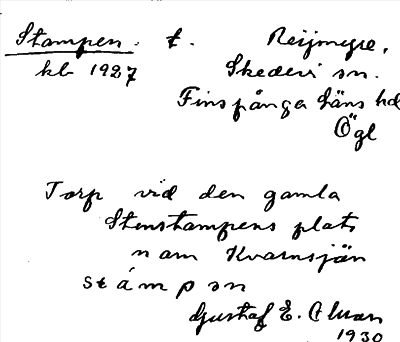 Stampen. t. Reijmyre,
kb 1927 Skedevi sn.
Finspånga läns hd
Ögl
Torp vid den gamla
Stenstampens plats
nam Kvarnsjön
stámpǝn
Gustaf E. Alman
1930